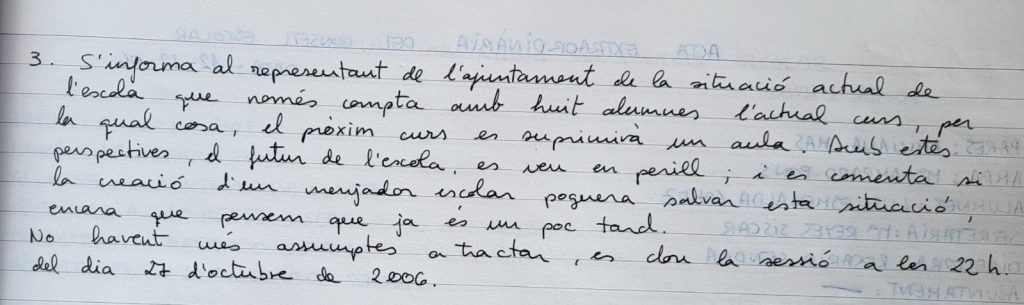 3. S'informa al representant de l'ajuntament de la situació actual de
l'escola que només compta amb huit alumnes l'actual curs, per
la qual cosa, el pròxim curs es suprimirà un aula. Amb estes
perspectives, el futur de l'escola, es veu en perill; i es comenta si
la creació d'un menjador escolar poguera salvar esta situació,
encara que pensem que ja és un poc tard.
No havent més assumptes a tractar, es clou la sessió a les 22 h.
del dia 27 d'octubre de 2006.